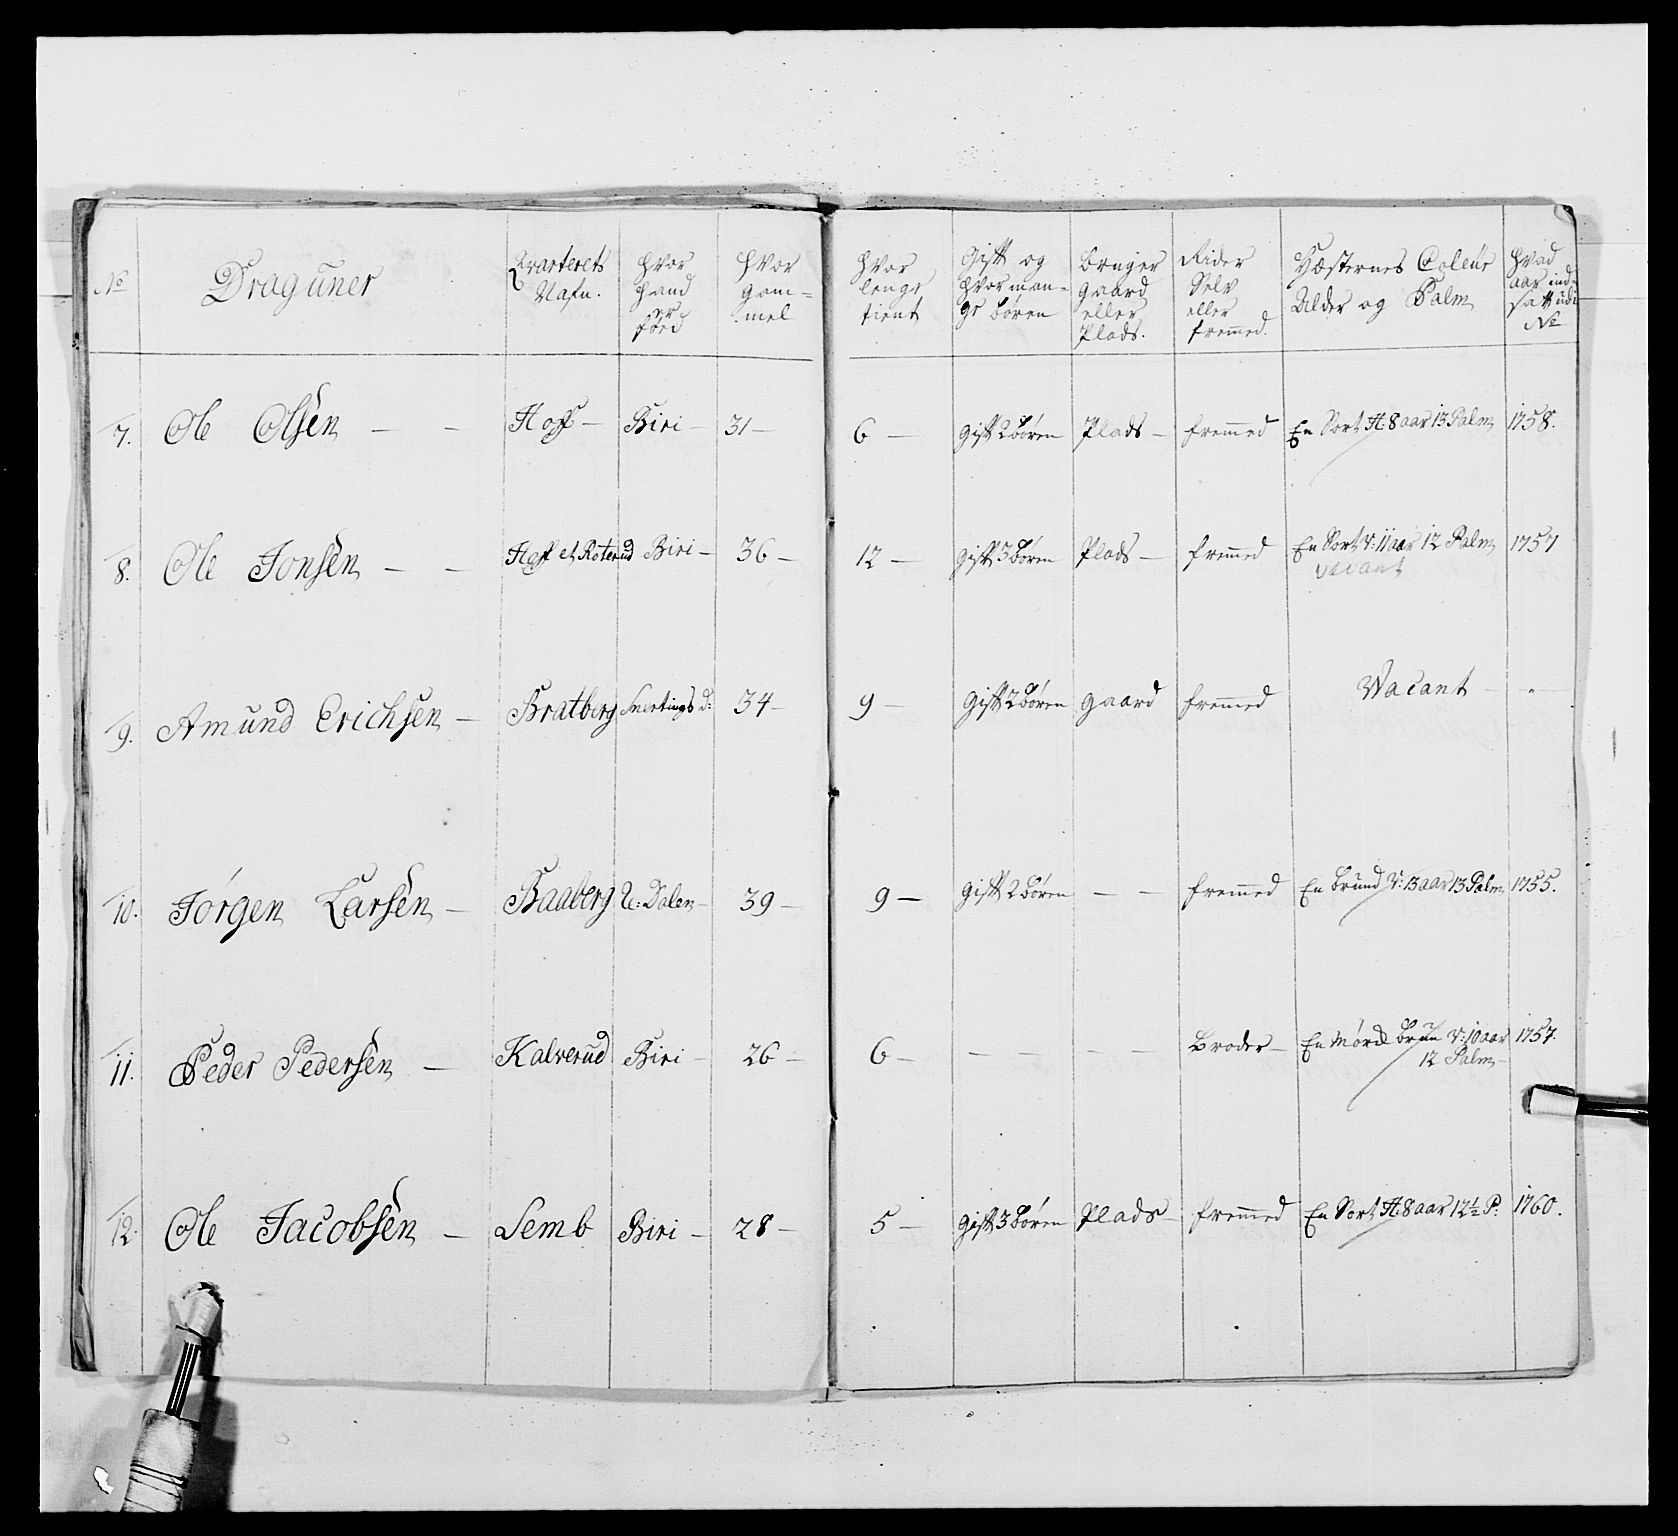 No Draguner Qvarterets Nafn. Hvor Hand er föed Hvor gam= mel Hvor lenge tient Gift og Hvor man= ge bören bruger gaard eller Plads. Rider Selv eller fremmed. Hæsternes Coleur Alder og Palm Hvad aar ind= satt udi No
7. Ole Olsen — — Hoff — Biri — 31 — 6 — Gift 2 bören Plads — fremmed En Sort H: 8 aar 13 Palm 1758.
8. Ole Jonsen — — Hoff et Roterud Biri — 36 — 12 — Gift 3 bören Plads — fremmed En Sort V: 11 aar 12 Palm 1757
vacant
9. Amund Erichsen — Bratberg Snertings d: 34 — 9 — Gift 2 bören gaard fremmed Vacant — „ —
10. Jörgen Larsen — Baaberg U: Dalen — 39 — 9 — Gift 2 bören — — fremmed En brund V: 13 aar 13 Palm 1755.
11. Peder Pedersen — Kalverud Biri — 26 — 6 — — — — Broder — En Mörck brun V: 10 aar 1757.
12 Palm
12. Ole Jacobsen — Semb Biri — 28 — 5 — Gift 3 bören Plads — fremmed En Sort H: 8 aar 12½ P: 1760.